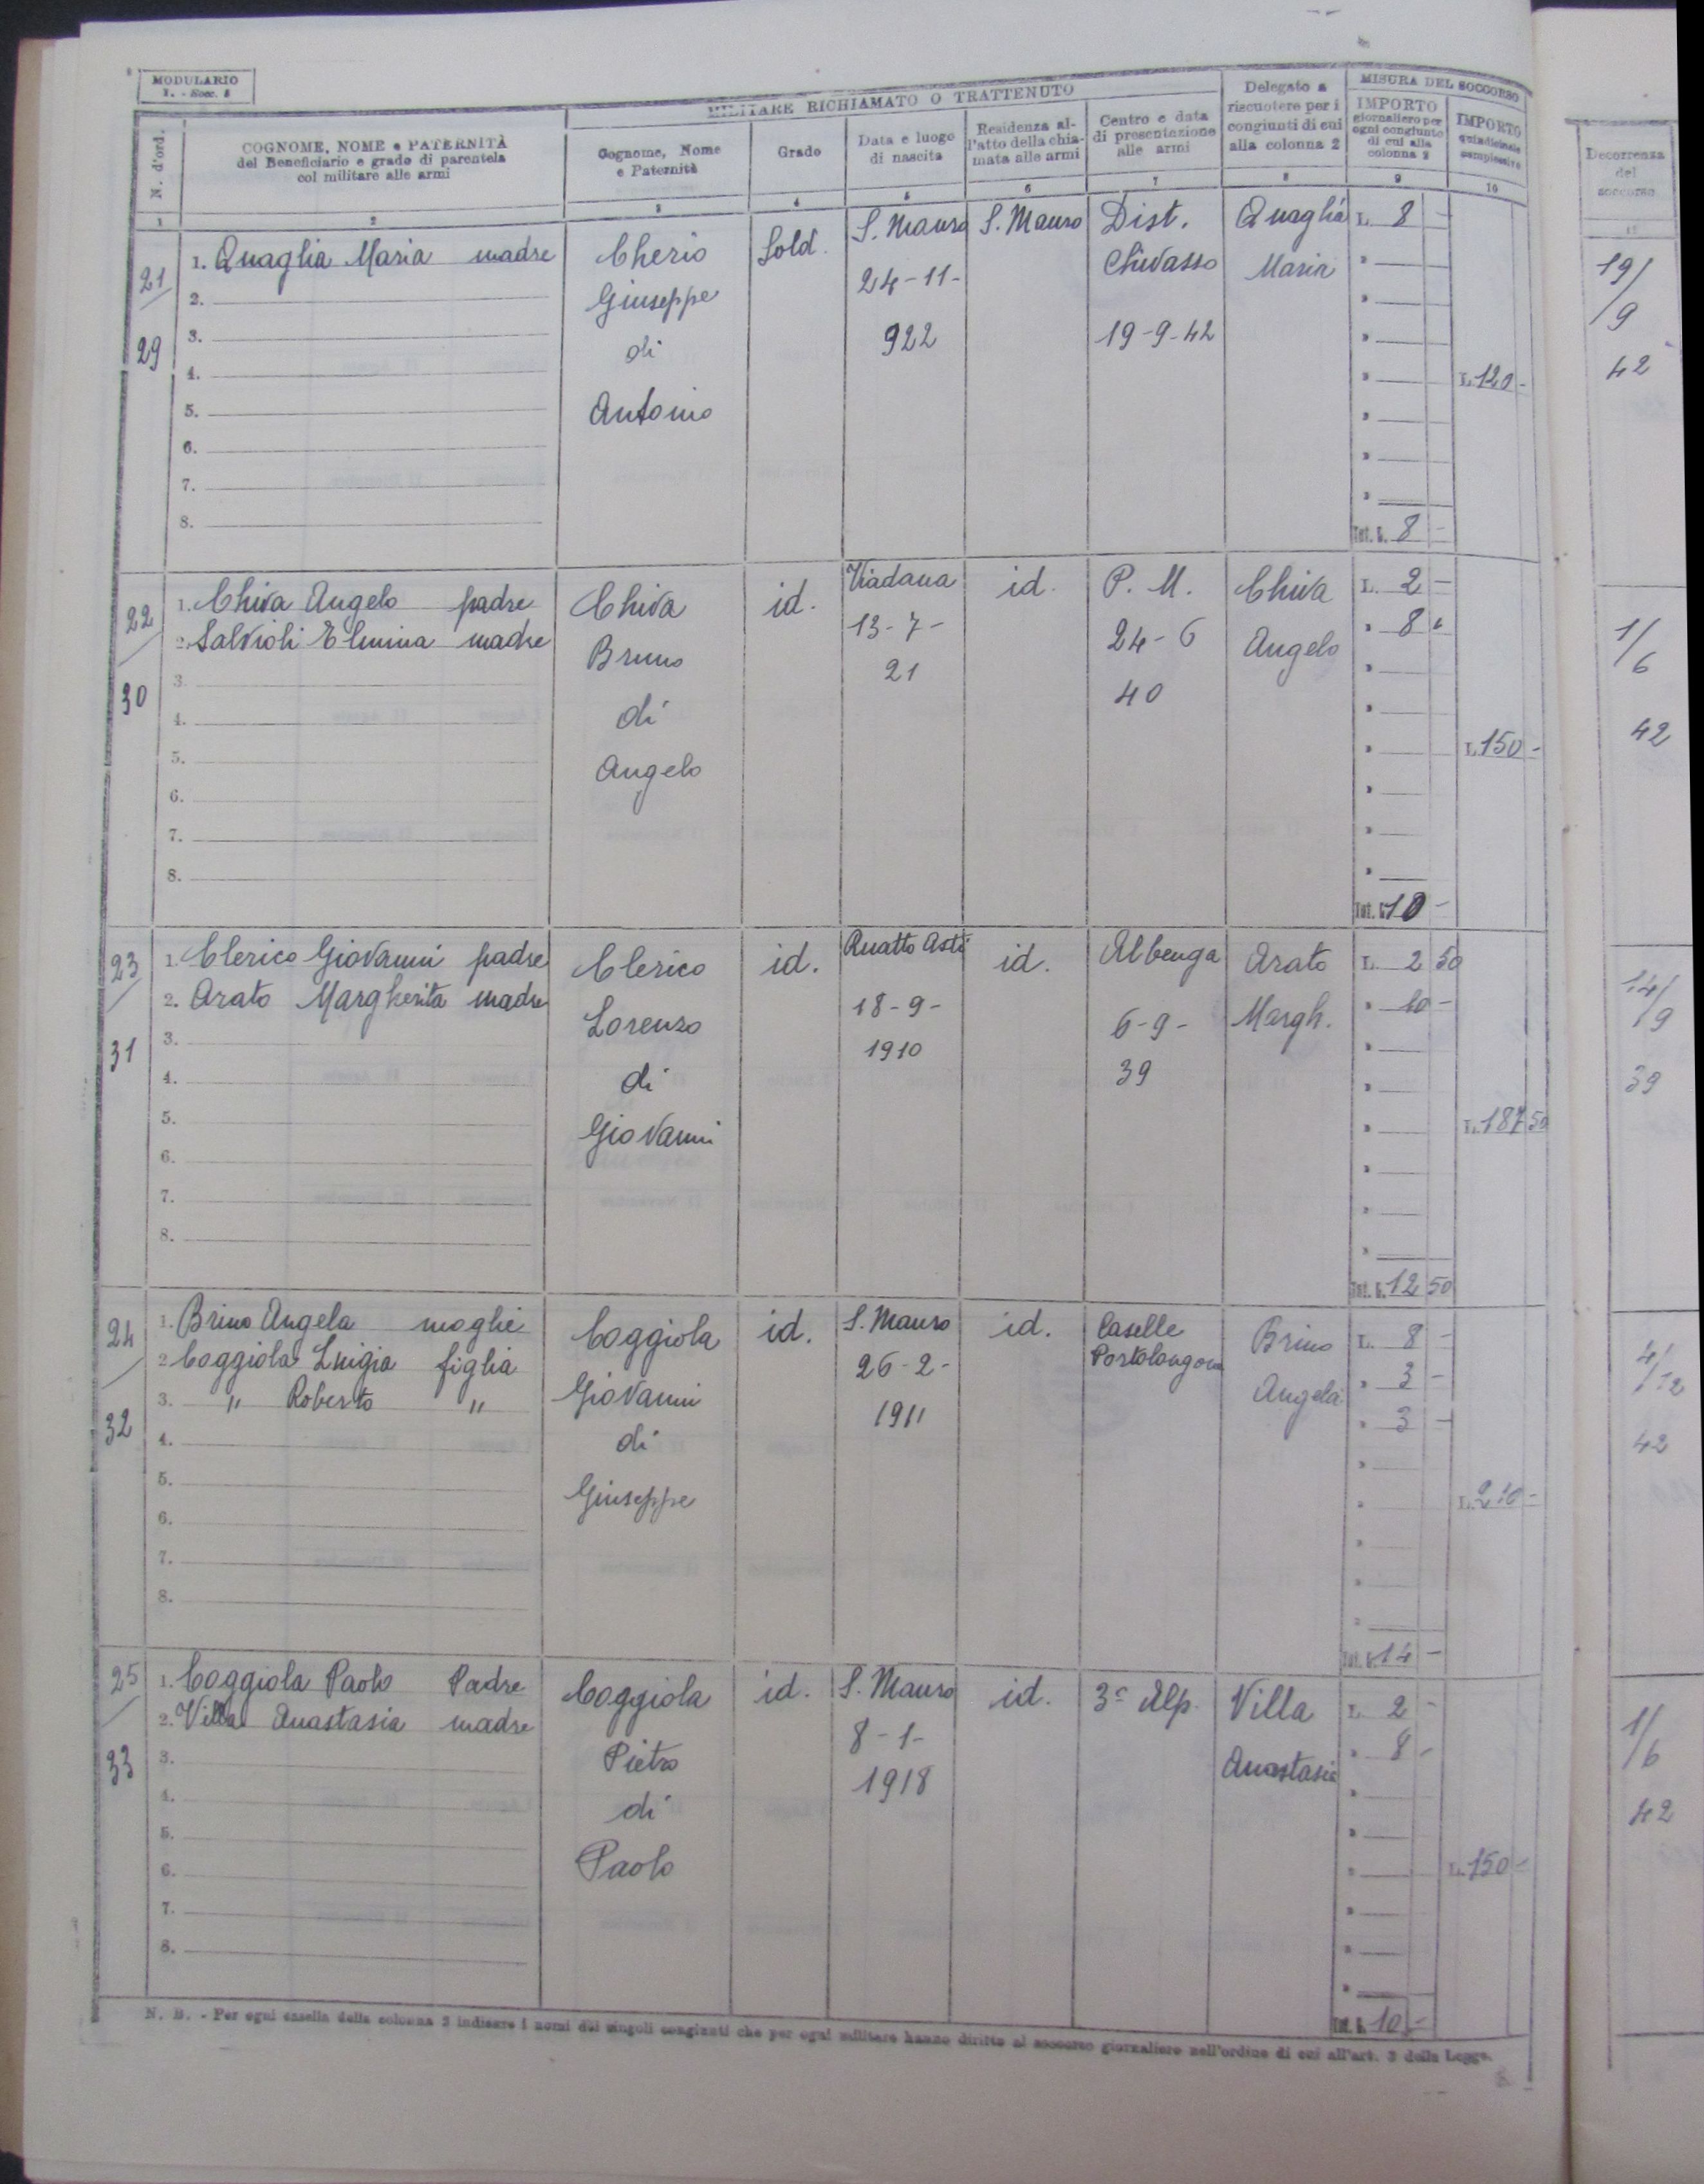 MODULARIO
I. - Socc. 5
MILITARE RICHIAMATO O TRATTENUTO
MISURA DEL SOCCORSO
N. d'ord.
COGNOME, NOME e PATERNITÀ
del Beneficiario e grado di parentela
col militare alle armi
Cognome, Nome
e Paternità
Grado
Data e luogo
di nascita
Residenza al-
l'atto della chia-
mata alle armi
Centro e data
di presentazione
alle armi
Delegato a
riscuotere per i
congiunti di cui
alla colonna 2
IMPORTO
giornaliero per
ogni congiunto
di cui alla
colonna 2
IMPORTO
quindicinale
complessivo
Decorrenza
del
soccorso
1 2 3 4 5 6 7 8 9 10 11
21/
29
1. Quaglia Maria madre
2.
3.
4.
5.
6.
7.
8.
Cherio
Giuseppe
di
Antonio
Sold.
S. Mauro
24-11-
922
S. Mauro
Dist.
Chivasso
19-9-42
Quaglia
Maria
L. 8 -
Tot. L. 8 -
L. 120 -
19/
/9
42
22/
30
1. Chiva Angelo padre
2. Salvioli Elmina madre
3.
4.
5.
6.
7.
8.
Chiva
Bruno
di
Angelo
id.
Viadana
13-7-
21
id.
P. M.
24-6
40
Chiva
Angelo
L. 2 -
" 8 "
Tot. L. 10 -
L. 150 -
1/
/6
42
23/
31
1. Clerico Giovanni padre
2. Arato Margherita madre
3.
4.
5.
6.
7.
8.
Clerico
Lorenzo
di
Giovanni
id.
Quatto Asti
18-9-
1910
id.
Albenga
6-9-
39
Arato
Margh.
L. 2 50
" 10 -
Tot. L. 12 50
L. 187 50
14/
/9
39
24/
32
1. Brino Angela moglie
2. Coggiola Luigia figlia
3. " Roberto "
4.
5.
6.
7.
8.
Coggiola
Giovanni
di
Giuseppe
id.
S. Mauro
26-2-
1911
id.
Caselle
Portolongone
Brino
Angela
L. 8 -
" 3 -
" 3 -
Tot. L. 14 -
L. 210 -
4/
/12
42
25/
33
1. Coggiola Paolo Padre
2. Villa Anastasia madre
3.
4.
5.
6.
7.
8.
Coggiola
Pietro
di
Paolo
id.
S. Mauro
8-1-
1918
id.
3° Alp.
Villa
Anastasia
L. 2 -
" 8 -
Tot. L. 10 -
L. 150 -
1/
/6
42
N. B. - Per ogni casella della colonna 2 indicare i nomi dei singoli congiunti che per ogni militare hanno diritto al soccorso giornaliero nell'ordine di cui all'art. 3 della Legge.